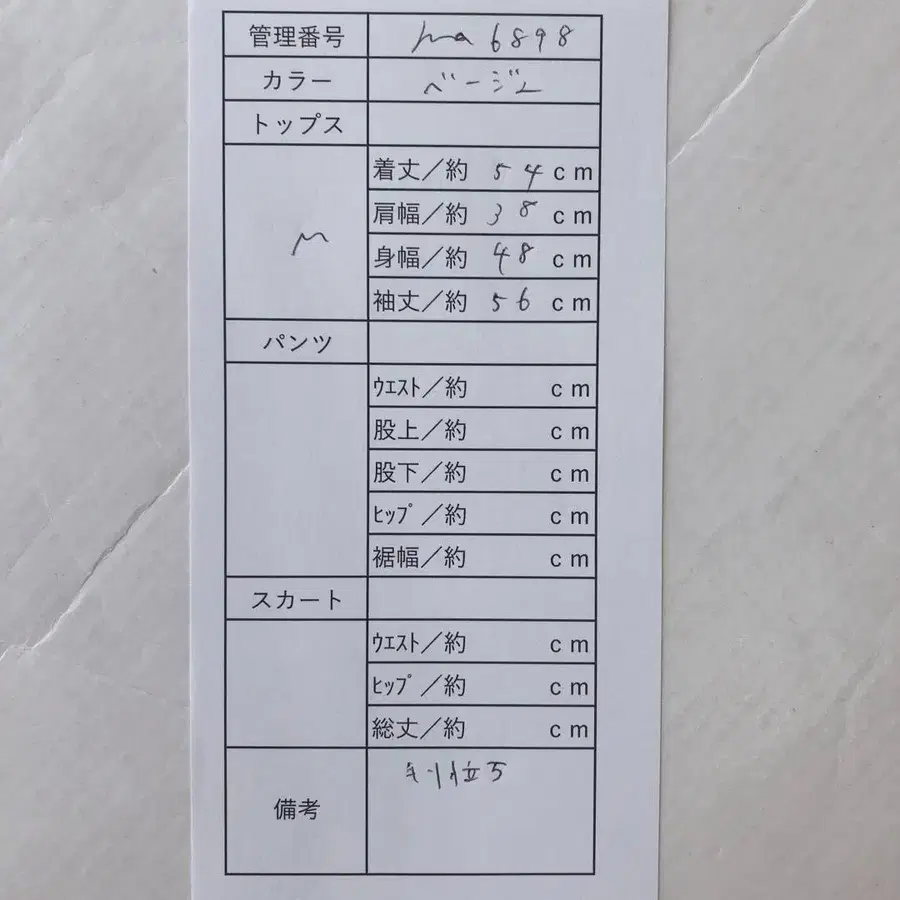 管理番号 ma6898
カラー ベージュ
トップス
M
着丈／約 54 cm
肩幅／約 38 cm
身幅／約 48 cm
袖丈／約 56 cm
パンツ
ｳｴｽﾄ／約 cm
股上／約 cm
股下／約 cm
ﾋｯﾌﾟ／約 cm
裾幅／約 cm
スカート
ｳｴｽﾄ／約 cm
ﾋｯﾌﾟ／約 cm
総丈／約 cm
備考 毛羽立ち